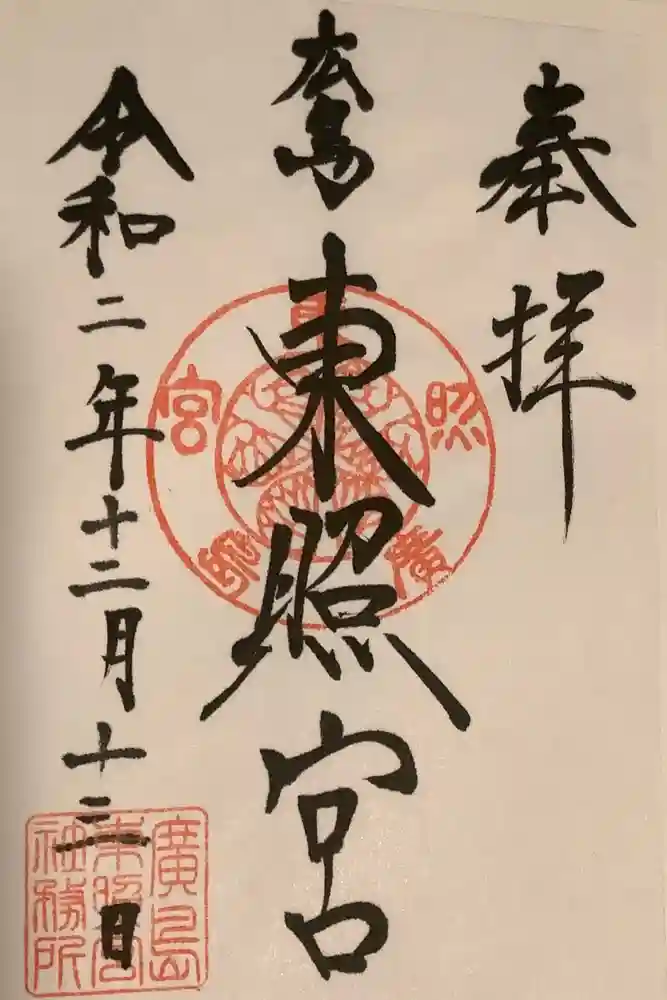 奉拝
広島東照宮
令和二年十二月十三日
東照宮廣島
廣島
東照宮
社務所